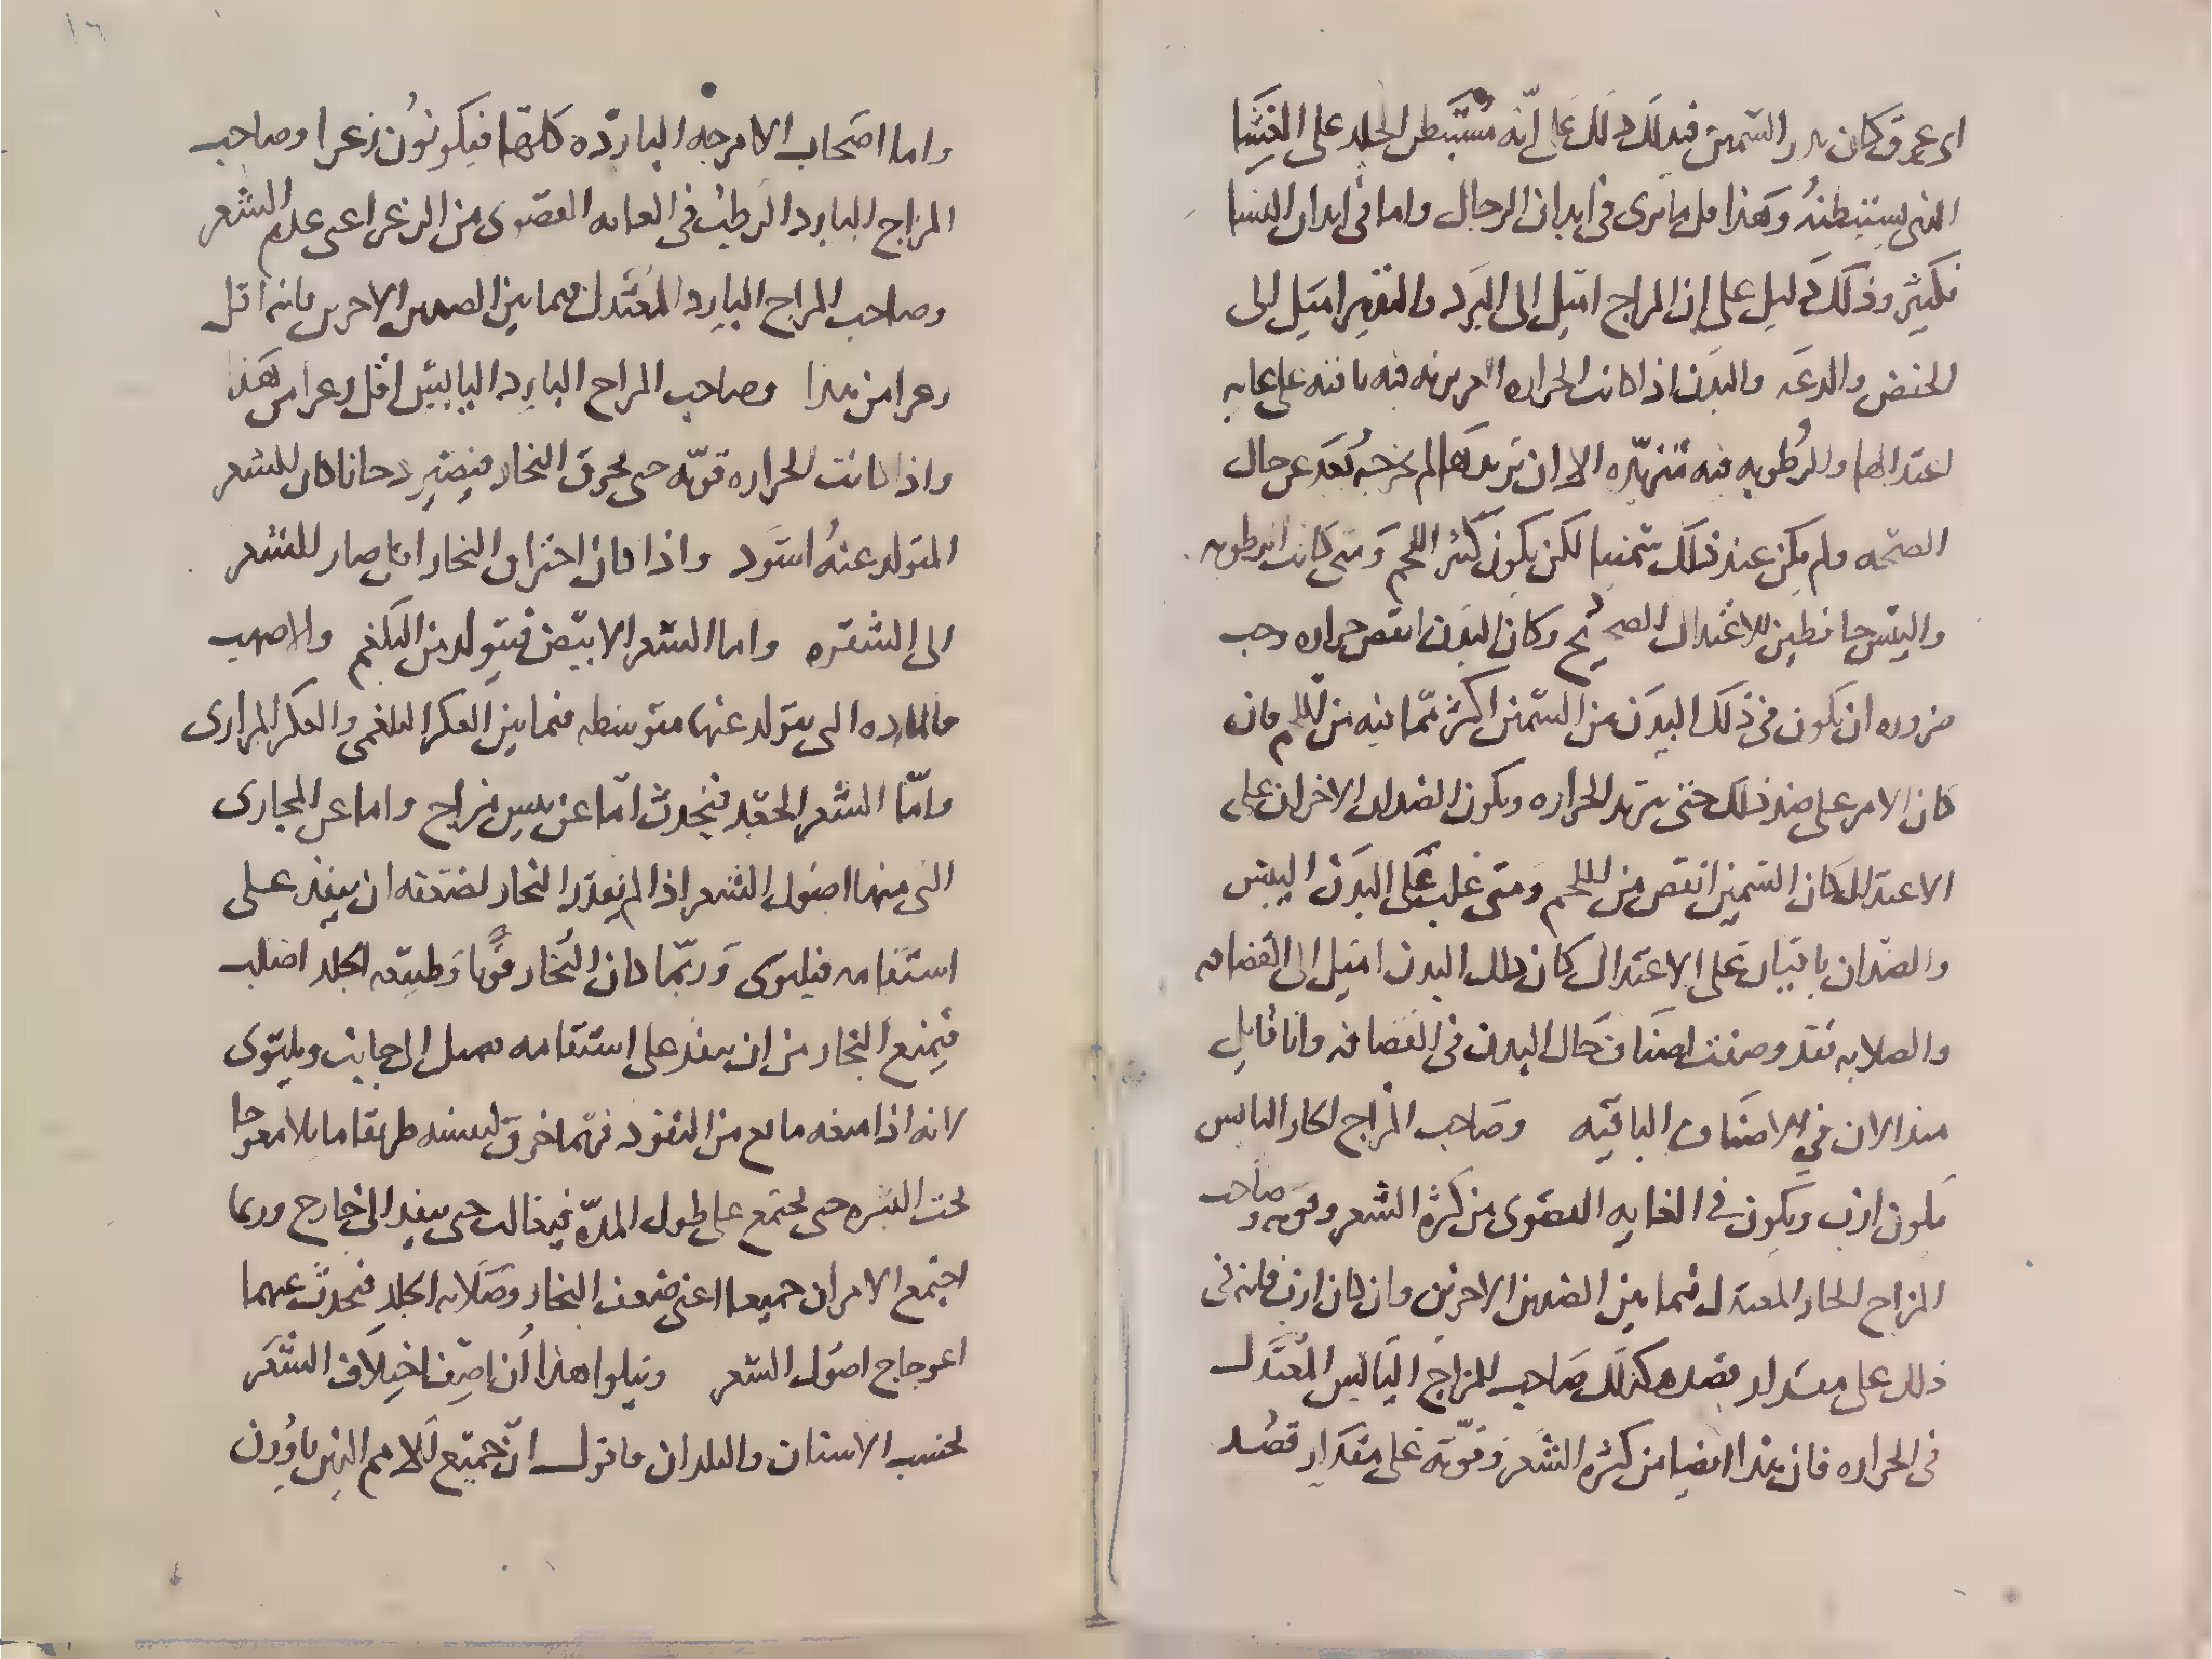 اى عرق كان بدر السمين فبدلك ذلك على انه مستبطن الجلد على الغشا
الذى يستبطنه وهذا قل ما ترى فى ابدان الرجال واما فى ابدان النسا
فكثير وذلك دليل على ان المزاج اميل الى البرد والتدبير اميل الى
الخفض والدعه والبدن اذا كانت الحراره الغريزيه فيه باقيه على غايه
اعتدالها والرطوبه فيه متزيده الا ان تزيدها لم يخرجه بعد عن حال
الصحه ولم يكن عند ذلك سمينا لكن يكون كثير اللحم ومتى كانت الرطوبه
واليبس حافظين للاعتدال الصحيح وكان البدن انقص حراره وجب
ضروره ان يكون فى ذلك البدن من السمين اكثر مما فيه من اللحم فان
كان الامر على ضد ذلك حتى تزيد الحراره ويكون الضدان الاخران على
الاعتدال كان السمين انقص من اللحم ومتى غلب على البدن اليبس
والضدان باقيان على الاعتدال كان ذلك البدن اميل الى القضافه
والصلابه فقد وصفت اصناف حال البدن فى القضافه وانا قايل
منذ الان فى الاصناف الباقيه وصاحب المزاج الحار اليابس
يكون ازب ويكون فى الغايه القصوى من كثرة الشعر وقوته وصاحب
المزاج الحار المعتدل فيما بين الضدين الاخرين وان كان ازب فانه فى
ذلك على مقدار قصد وكذلك صاحب المزاج اليابس المعتدل
فى الحراره فان هذا ايضا من كثرة الشعر وقوته على مقدار قصد
١٦
واما اصحاب الامزجه البارده كلها فيكونون زعرا وصاحب
المزاج البارد الرطب فى الغايه القصوى من الزعر اعنى عدم الشعر
وصاحب المزاج البارد المعتدل فيما بين الضدين الاخرين فانه اقل
زعرا من هذا وصاحب المزاج البارد اليابس اقل زعرا من هذا
واذا كانت الحراره قويه حتى تحرق البخار فيصير دخانا كان الشعر
المتولد عنه اسود واذا كان احتراق البخار اقل صار الشعر
الى الشقره واما الشعر الابيض فيتولد من البلغم والاصهب
فالماده التى يتولد عنها متوسطه فيما بين العكر البلغمى والعكر المرارى
واما الشعر الجعد فيحدث اما عن يبس مزاج واما عن المجارى
التى منها اصول الشعر اذا لم يقدر البخار لضعفه ان ينفذ على
استقامه فيلتوى وربما كان البخار قويا وطبيعه الجلد اصلب
فيمنع البخار من ان ينفذ على استقامه فيميل الى جانب ويلتوى
لانه اذا منعه مانع من النفوذ فربما خرق لنفسه طريقا مايلا معوجا
تحت البشره حتى يجتمع على طول المدة فيغالب حتى ينفذ الى خارج وربما
اجتمع الامران جميعا اعنى ضعف البخار وصلابه الجلد فيحدث عنهما
اعوجاج اصول الشعر ويتلوا هذا ان اصف اختلاف الشعر
بحسب الاسنان والبلدان فاقول ان جميع الامم الذين ياوون